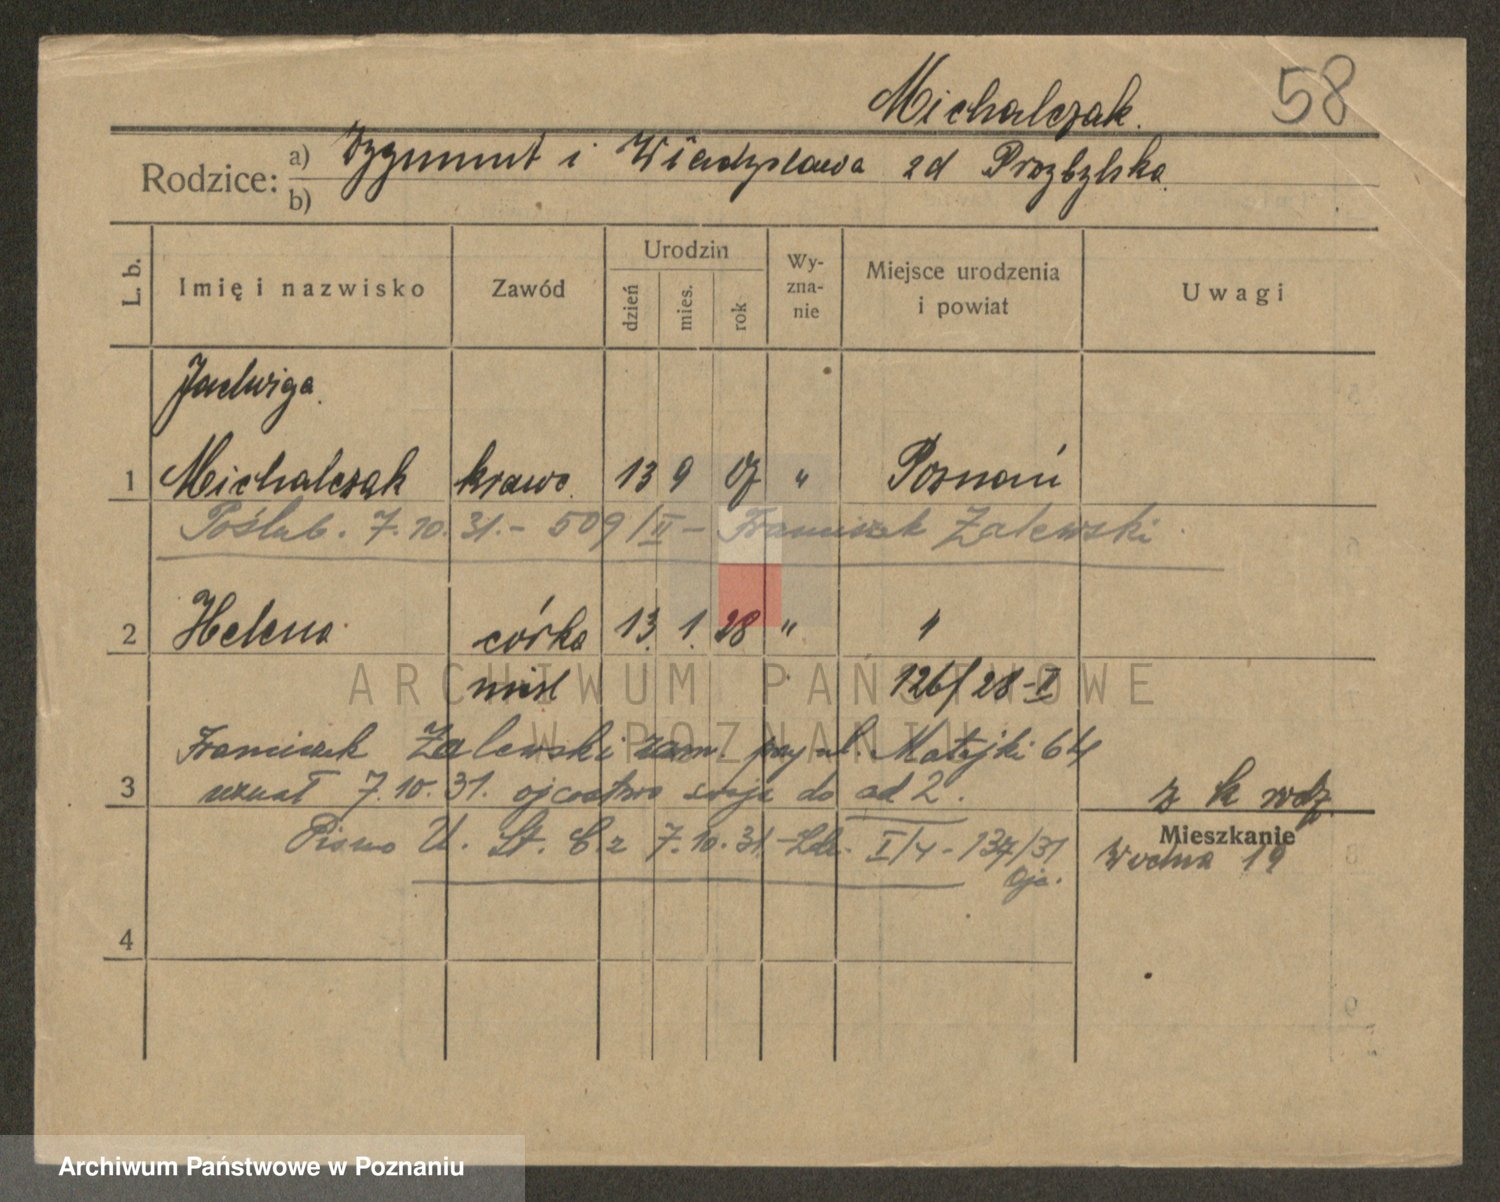 Michalczak.
58
Rodzice: a) Zygmunt i Władysława zd Przybylska
b)
L. b.
Imię i nazwisko
Zawód
Urodzin
dzień
mies.
rok
Wy-
zna-
nie
Miejsce urodzenia
i powiat
Uwagi
Jadwiga.
1 Michalczak krawc. 13 9 07 " Poznań
Poślub. 7.10.31.- 509/II - Franciszek Zalewski
2 Helena córka 13. 1. 28 " "
nieśl 126/28-I
ARCHIWUM PAŃSTWOWE
W POZNANIU
Franciszek Zalewski zam. przy ul. Matejki 64
3 uznał 7.10.31. ojcostwo swoje do ad 2.
z k wdz.
Pismo U. St. C. z 7.10.31.- I/4 - 137/31
Mieszkanie
Wodna 19
4
Archiwum Państwowe w Poznaniu